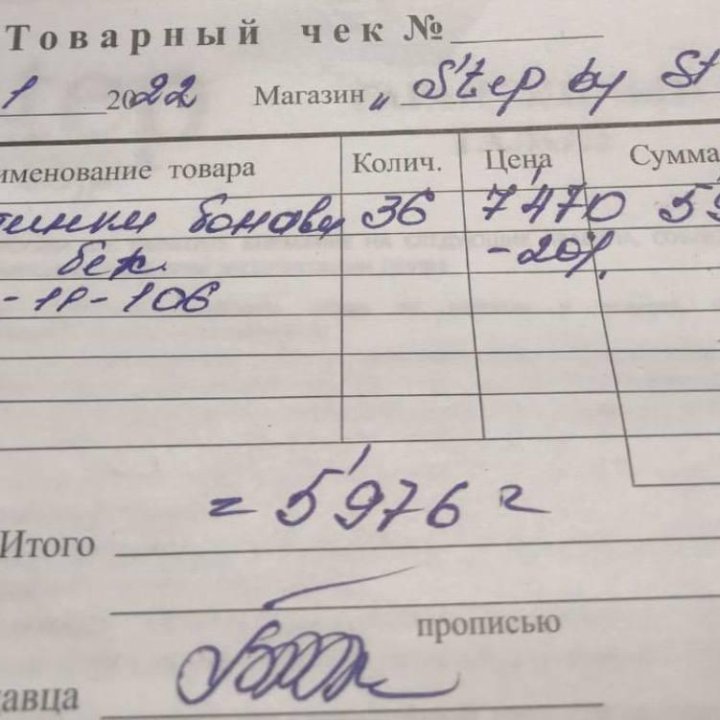 Товарный чек №
1 2022 Магазин „ Step by St
именование товара Колич. Цена Сумма
тинки бонави 36 7'470 59
беж. -20%
-1P-106
= 5'976 =
Итого
прописью
давца